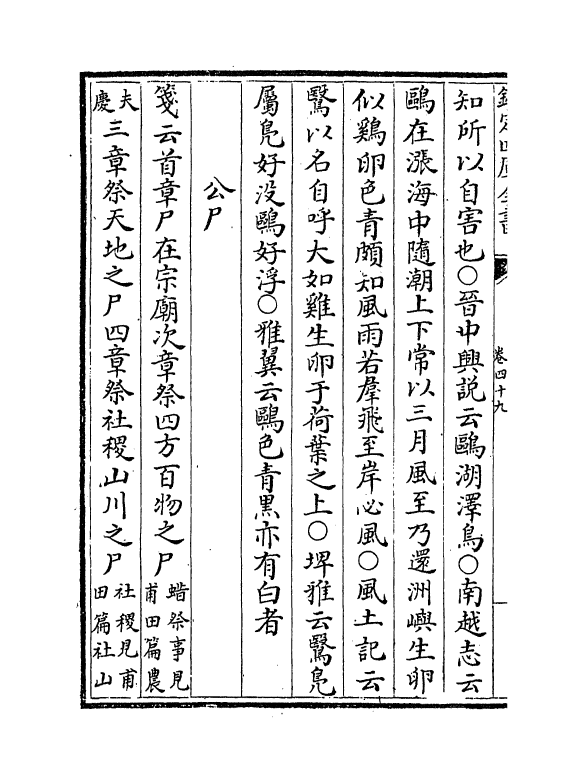 欽定四庫全書
卷四十九
知所以自害也○晉中興説云鷗湖澤鳥○南越志云
鷗在漲海中隨潮上下常以三月風至乃還洲嶼生卵
似鷄卵色青頗知風雨若羣飛至岸必風○風土記云
鷖以名自呼大如雞生卵于荷葉之上○埤雅云鷖鳬
屬鳬好没鷗好浮○雅翼云鷗色青黑亦有白者
公尸
箋云首章尸在宗廟次章祭四方百物之尸蜡祭事見甫田篇農
夫慶三章祭天地之尸四章祭社稷山川之尸社稷見甫田篇社山